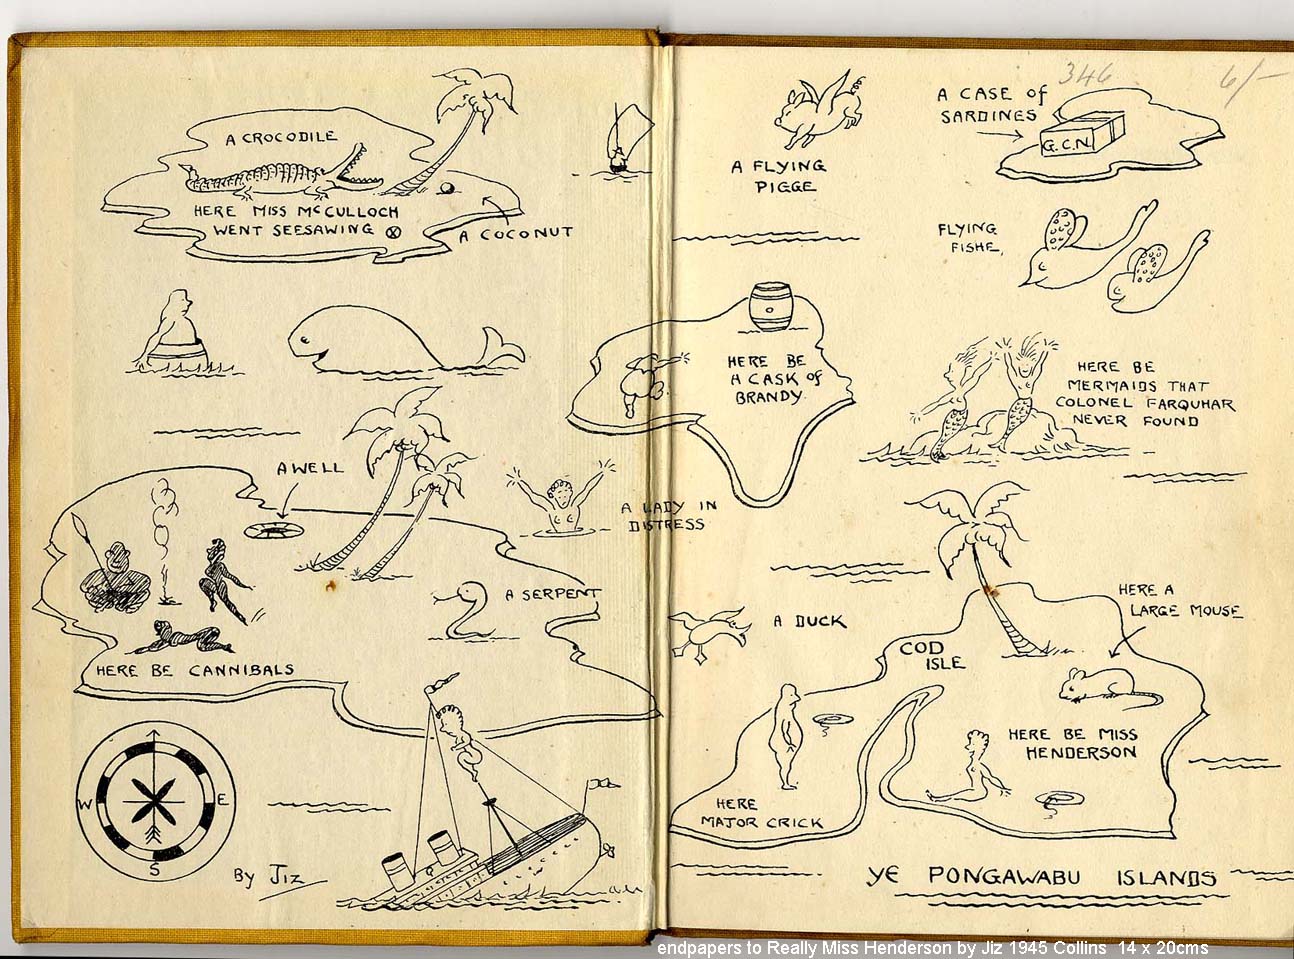 A CROCODILE
HERE MISS McCULLOCH
WENT SEESAWING
A COCONUT
A WELL
A SERPENT
HERE BE CANNIBALS
W
E
S
By Jiz
A LADY IN
DISTRESS
346
6/-
A FLYING
PIGGE
A CASE of
SARDINES
G.C.N.
FLYING
FISHE,
HERE BE
A CASK of
BRANDY.
HERE BE
MERMAIDS THAT
COLONEL FARQUHAR
NEVER FOUND
A DUCK
HERE A
LARGE MOUSE
COD
ISLE
HERE BE MISS
HENDERSON
HERE
MAJOR CRICK
YE PONGAWABU ISLANDS
endpapers to Really Miss Henderson by Jiz 1945 Collins 14 x 20cms